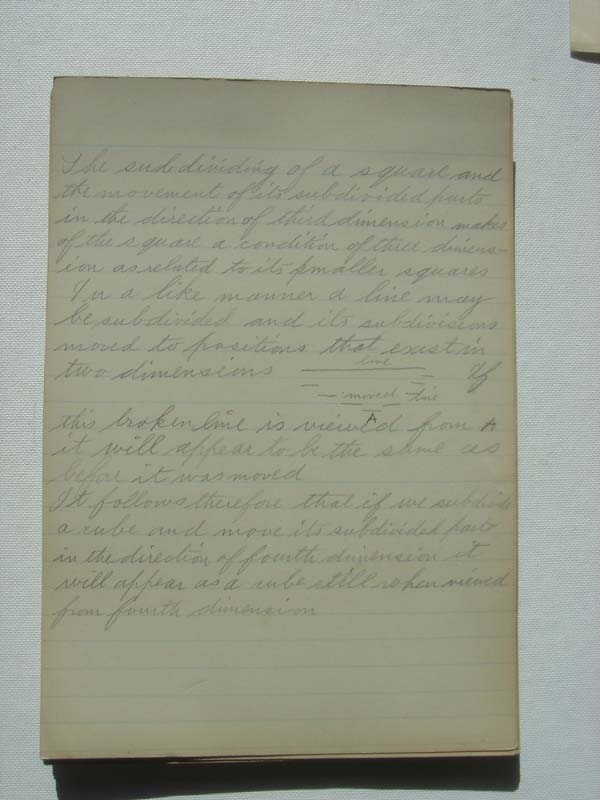 The subdividing of a square and
the movement of its subdivided parts
in the direction of third dimension makes
of the square a condition of three dimens-
ion as related to its smaller squares
In a like manner a line may
be subdivided and its subdivisions
moved to positions that exist in
two dimensions line If
moved line
A
this broken line is viewed from A
it will appear to be the same as
before it was moved
It follows therefore that if we subdivide
a cube and move its subdivided parts
in the direction of fourth dimension it
will appear as a cube still when viewed
from fourth dimension